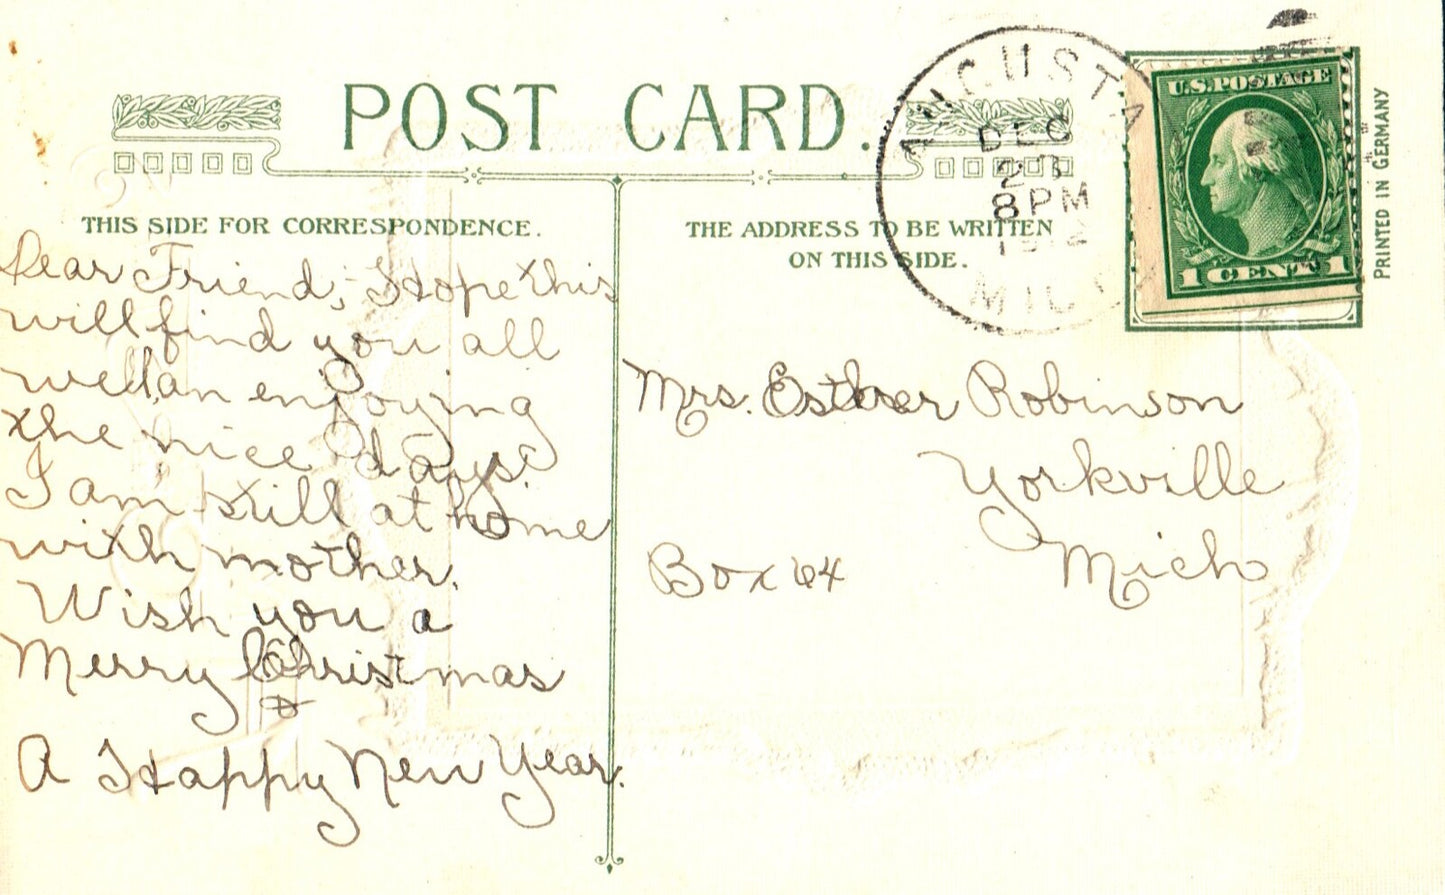 POST CARD.
THIS SIDE FOR CORRESPONDENCE.
THE ADDRESS TO BE WRITTEN
ON THIS SIDE.
AUGUSTA
DEC
8 PM
1912
MICH
U.S. POSTAGE
1 CENT 1
PRINTED IN GERMANY
Dear Friend; I Hope this
will find you all
well an enjoying
the nice days.
I am still at home
with mother.
Wish you a
Merry Christmas
&
A Happy New Year.
Mrs. Esther Robinson
Yorkville
Mich
Box 64